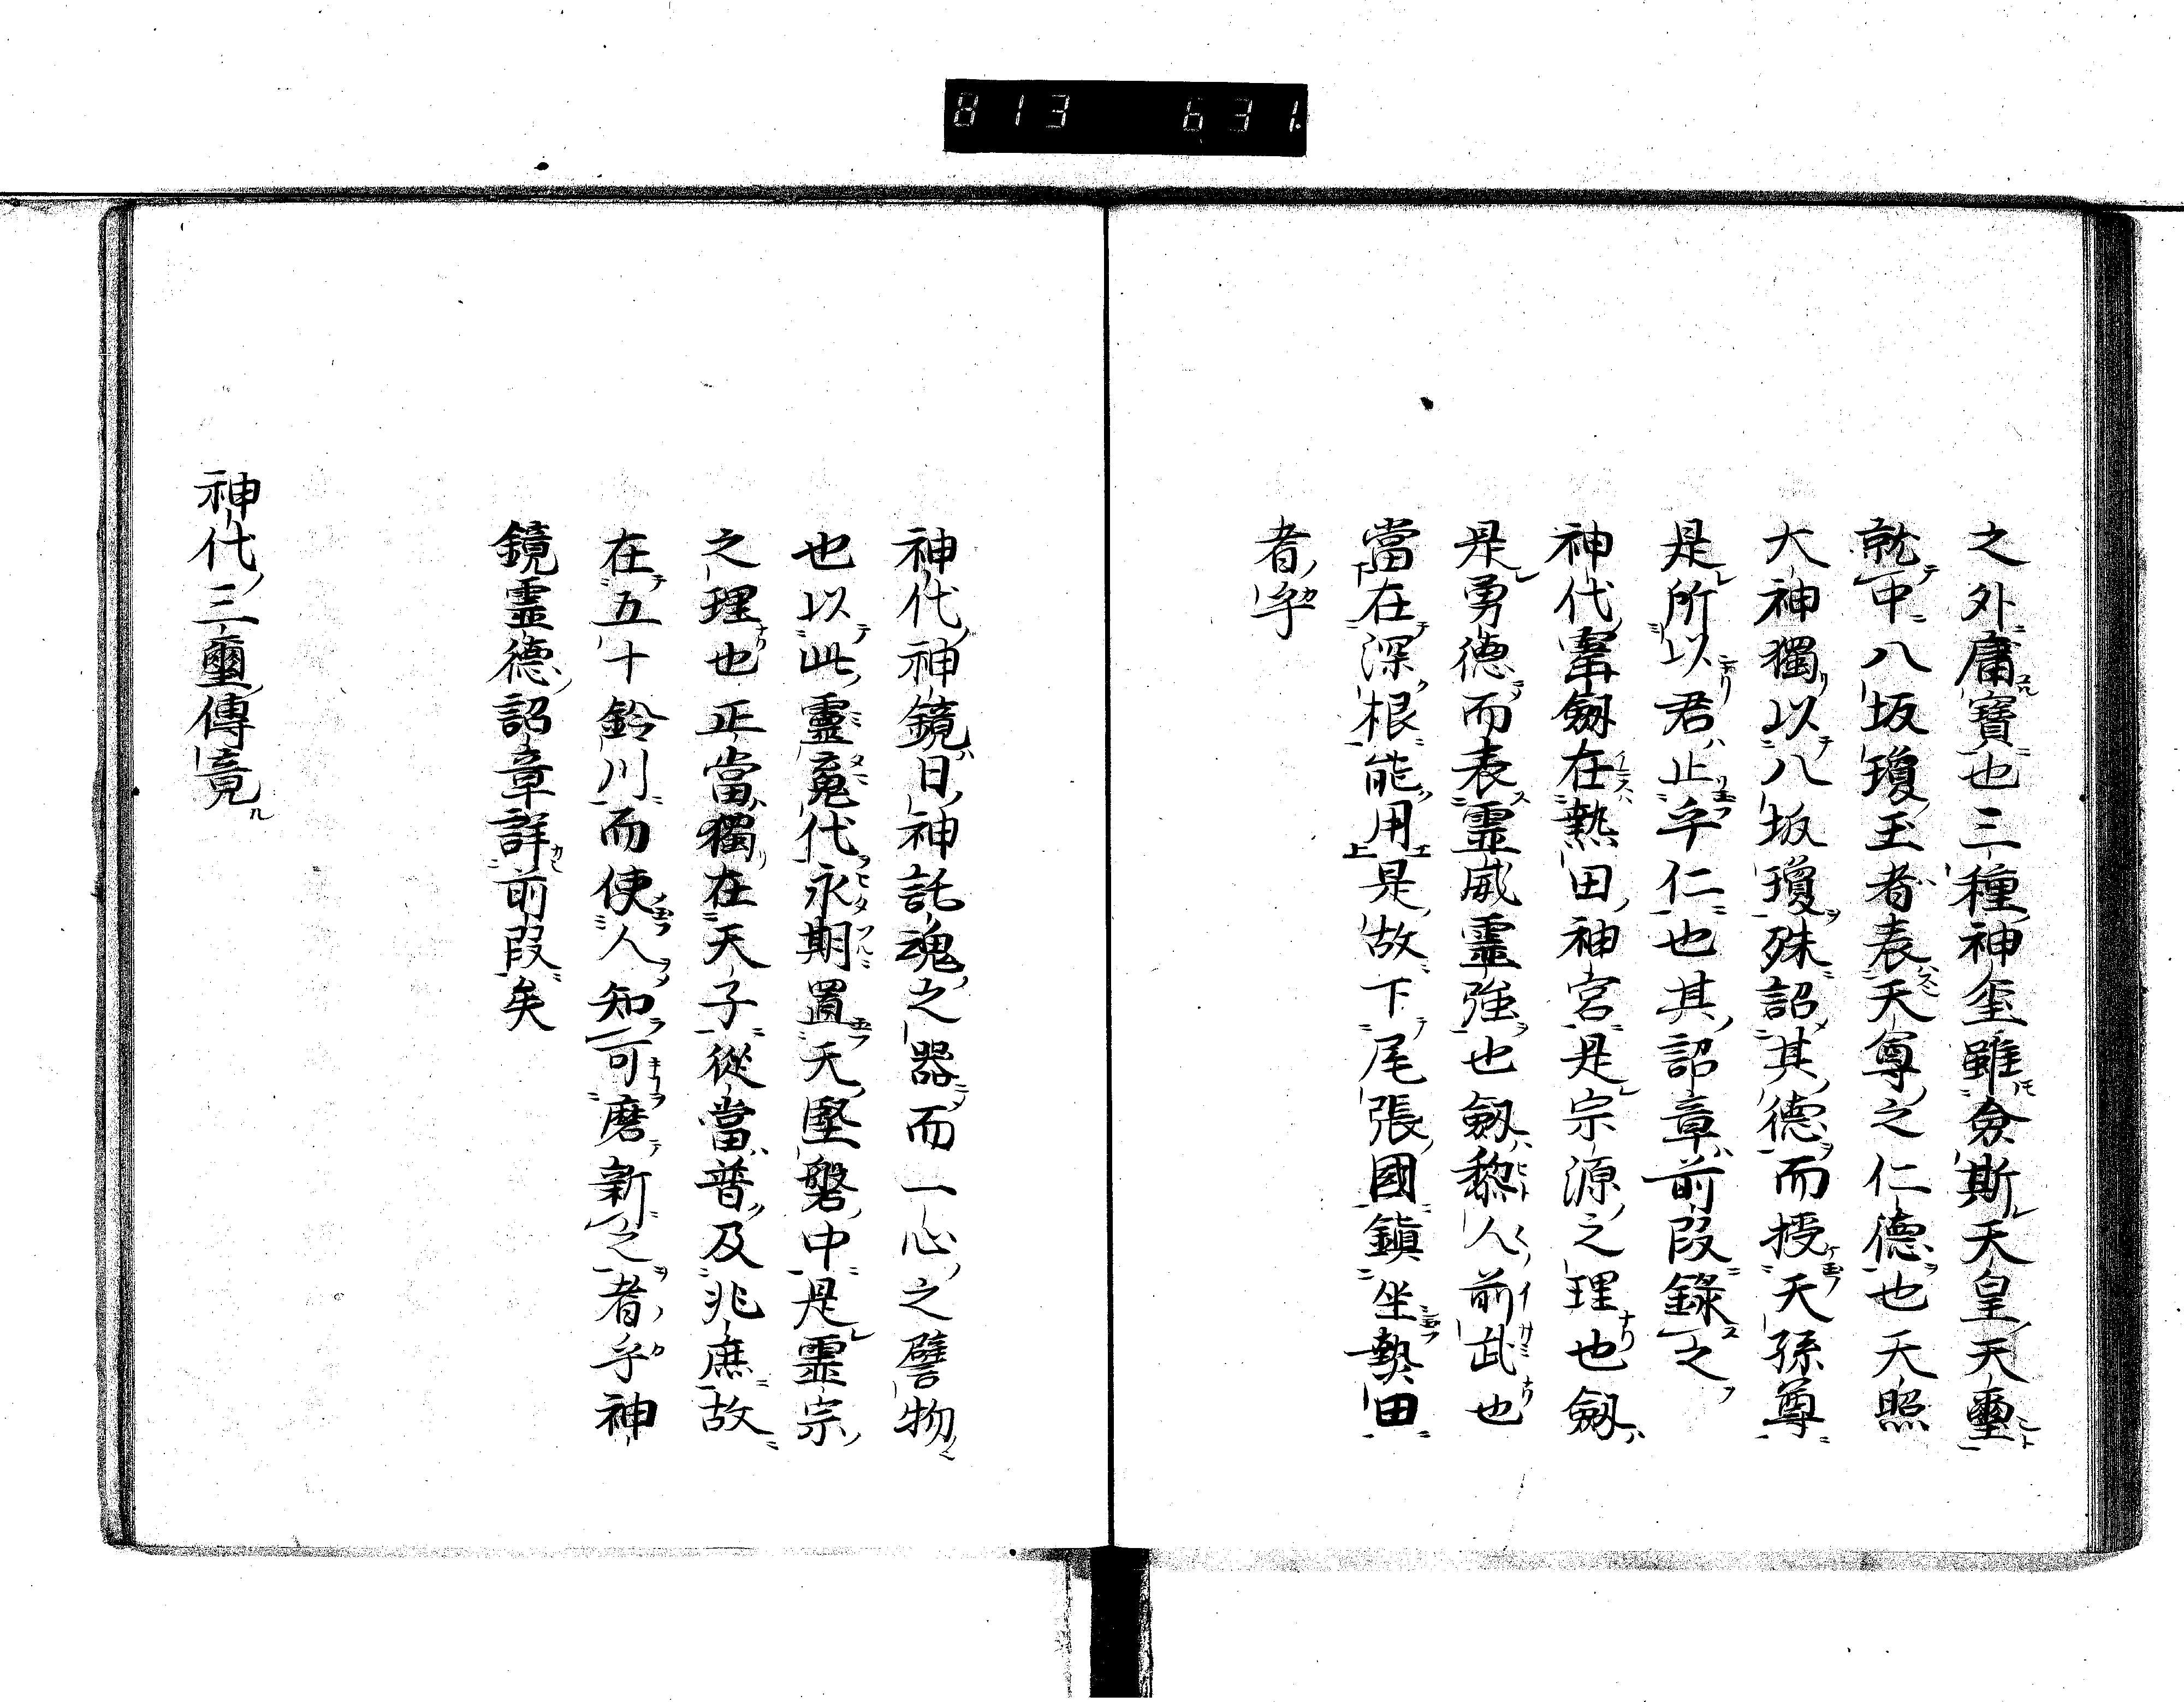 813 631.
之外庸寶也三種神璽雖僉斯天皇天璽
就中八坂瓊玉者表天尊之仁德也天照
大神獨以八坂瓊殊詔其德而授天孫尊
是所以君止乎仁也其詔章前段錄之
神代寶劔在熱田神宮是宗源之理也劔
是勇德而表靈威靈強也劔黎人前武也
當在深根能用是故下尾張國鎮坐熱田
者乎
神代神鏡日神託魂之器而一心之譬物
也以此靈魂代永期置天堅磐中是靈宗
之理也正當獨在天子從當普及兆庶故
在五十鈴川而使人知可磨新之者乎神
鏡靈德詔章詳前段矣
神代三璽傳竟